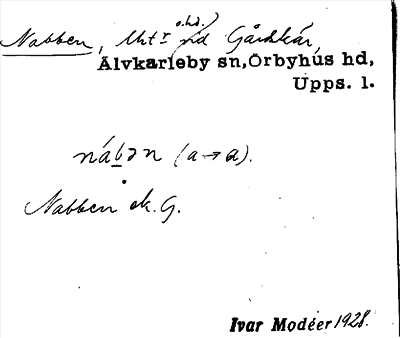 Nabben, Unt:r o.hd. nd Gårdskär,
Älvkarleby sn, Örbyhus hd,
Upps. l.
nábən (a→a).
Nabben ek. G.
Ivar Modéer 1928.